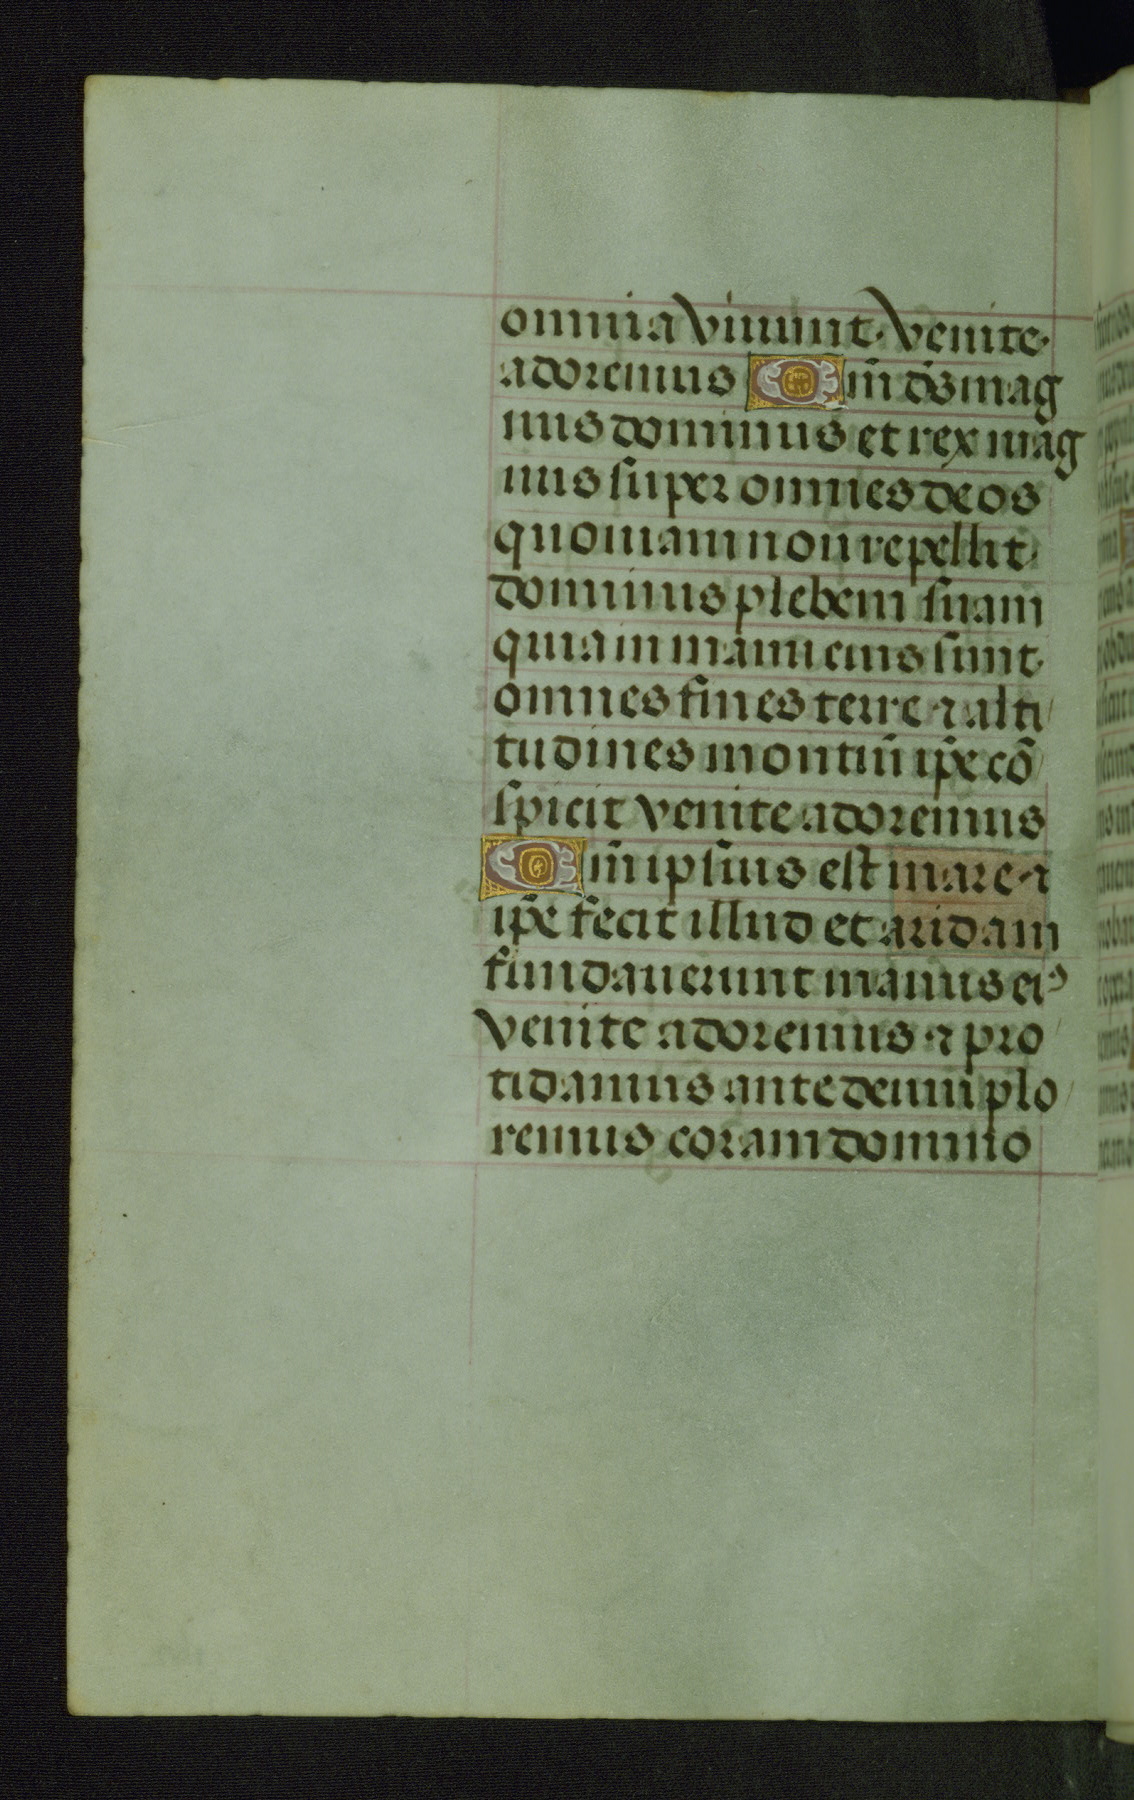 omnia viuunt. Venite.
adoremus Qm̄ de͂s mag
nus dominus et rex mag
nus super omnes deos
quoniam non repellit.
dominus plebem suam
quia in manu eius sunt.
omnes fines terre ⁊ alti
tudines montiū ip̄e cō
spicit venite adoremus
Qm̄ ipsius est mare ⁊
ip̄e fecit illud et aridam
fundauerunt manus eiꝰ
Venite adoremus ⁊ pro
cidamus ante deum plo
remus coram domino